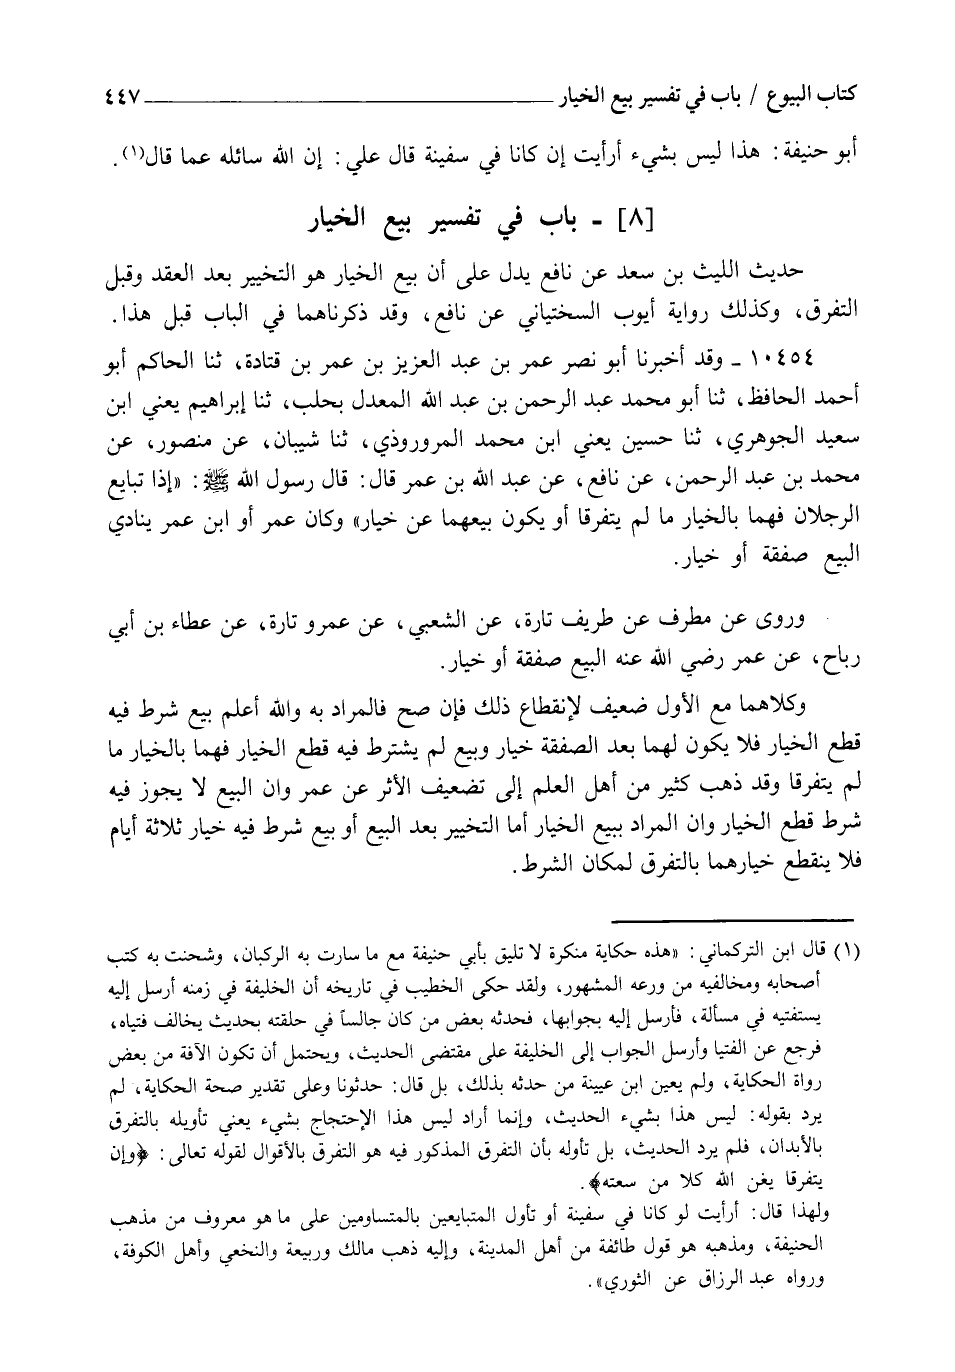 كتاب البيوع / باب في تفسير بيع الخيار ــــــــــــــــــــــــ ٤٤٧
أبو حنيفة: هذا ليس بشيء أرأيت إن كانا في سفينة قال علي: إن الله سائله عما قال(١).
[٨] ـ باب في تفسير بيع الخيار
حديث الليث بن سعد عن نافع يدل على أن بيع الخيار هو التخيير بعد العقد وقبل
التفرق، وكذلك رواية أيوب السختياني عن نافع، وقد ذكرناهما في الباب قبل هذا.
١٠٤٥٤ ـ وقد أخبرنا أبو نصر عمر بن عبد العزيز بن عمر بن قتادة، ثنا الحاكم أبو
أحمد الحافظ، ثنا أبو محمد عبد الرحمن بن عبد الله المعدل بحلب، ثنا إبراهيم يعني ابن
سعيد الجوهري، ثنا حسين يعني ابن محمد المروروذي، ثنا شيبان، عن منصور، عن
محمد بن عبد الرحمن، عن نافع، عن عبد الله بن عمر قال: قال رسول الله ﷺ: «إذا تبايع
الرجلان فهما بالخيار ما لم يتفرقا أو يكون بيعهما عن خيار» وكان عمر أو ابن عمر ينادي
البيع صفقة أو خيار.
وروى عن مطرف عن طريف تارة، عن الشعبي، عن عمرو تارة، عن عطاء بن أبي
رباح، عن عمر رضي الله عنه البيع صفقة أو خيار.
وكلاهما مع الأول ضعيف لإنقطاع ذلك فإن صح فالمراد به والله أعلم بيع شرط فيه
قطع الخيار فلا يكون لهما بعد الصفقة خيار وبيع لم يشترط فيه قطع الخيار فهما بالخيار ما
لم يتفرقا وقد ذهب كثير من أهل العلم إلى تضعيف الأثر عن عمر وان البيع لا يجوز فيه
شرط قطع الخيار وان المراد ببيع الخيار أما التخيير بعد البيع أو بيع شرط فيه خيار ثلاثة أيام
فلا ينقطع خيارهما بالتفرق لمكان الشرط.
(١) قال ابن التركماني: «هذه حكاية منكرة لا تليق بأبي حنيفة مع ما سارت به الركبان، وشحنت به كتب
أصحابه ومخالفيه من ورعه المشهور، ولقد حكى الخطيب في تاريخه أن الخليفة في زمنه أرسل إليه
يستفتيه في مسألة، فأرسل إليه بجوابها، فحدثه بعض من كان جالساً في حلقته بحديث يخالف فتياه،
فرجع عن الفتيا وأرسل الجواب إلى الخليفة على مقتضى الحديث، ويحتمل أن تكون الآفة من بعض
رواة الحكاية، ولم يعين ابن عيينة من حدثه بذلك، بل قال: حدثونا وعلى تقدير صحة الحكاية، لم
يرد بقوله: ليس هذا بشيء الحديث، وإنما أراد ليس هذا الإحتجاج بشيء يعني تأويله بالتفرق
بالأبدان، فلم يرد الحديث، بل تأوله بأن التفرق المذكور فيه هو التفرق بالأقوال لقوله تعالى: ﴿وإن
يتفرقا يغن الله كلا من سعته﴾.
ولهذا قال: أرأيت لو كانا في سفينة أو تأول المتبايعين بالمتساومين على ما هو معروف من مذهب
الحنيفة، ومذهبه هو قول طائفة من أهل المدينة، وإليه ذهب مالك وربيعة والنخعي وأهل الكوفة،
ورواه عبد الرزاق عن الثوري».